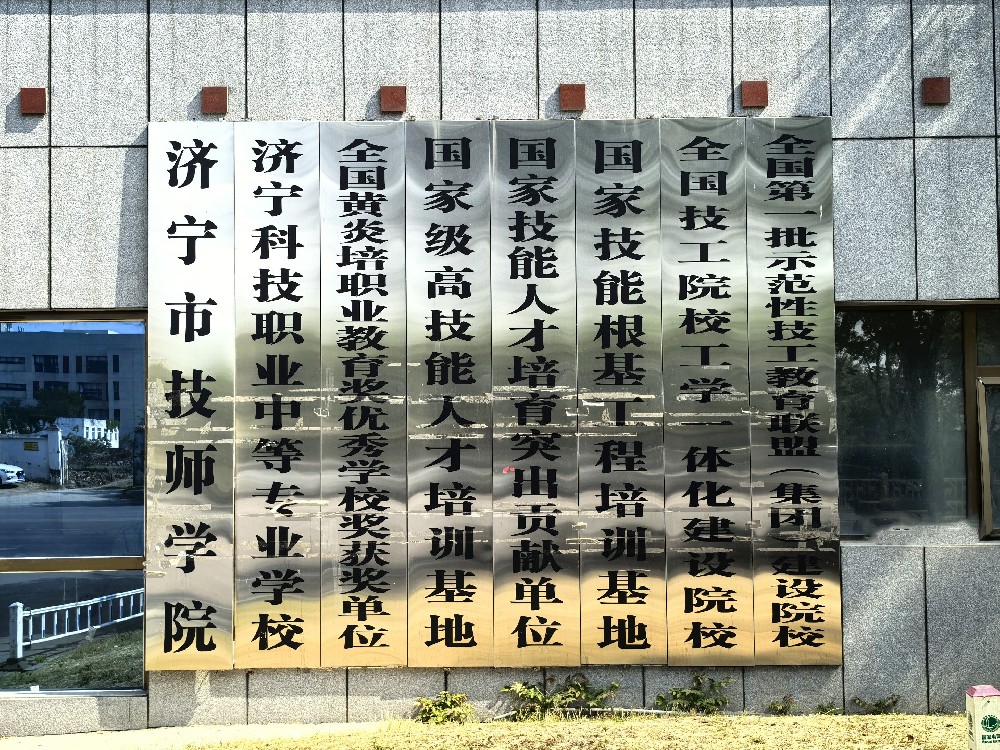 济宁市技师学院
济宁科技职业中等专业学校
全国黄炎培职业教育奖优秀学校奖获奖单位
国家级高技能人才培训基地
国家技能人才培育突出贡献单位
国家技能根基工程培训基地
全国技工院校工学一体化建设院校
全国第一批示范性技工教育联盟（集团）建设院校